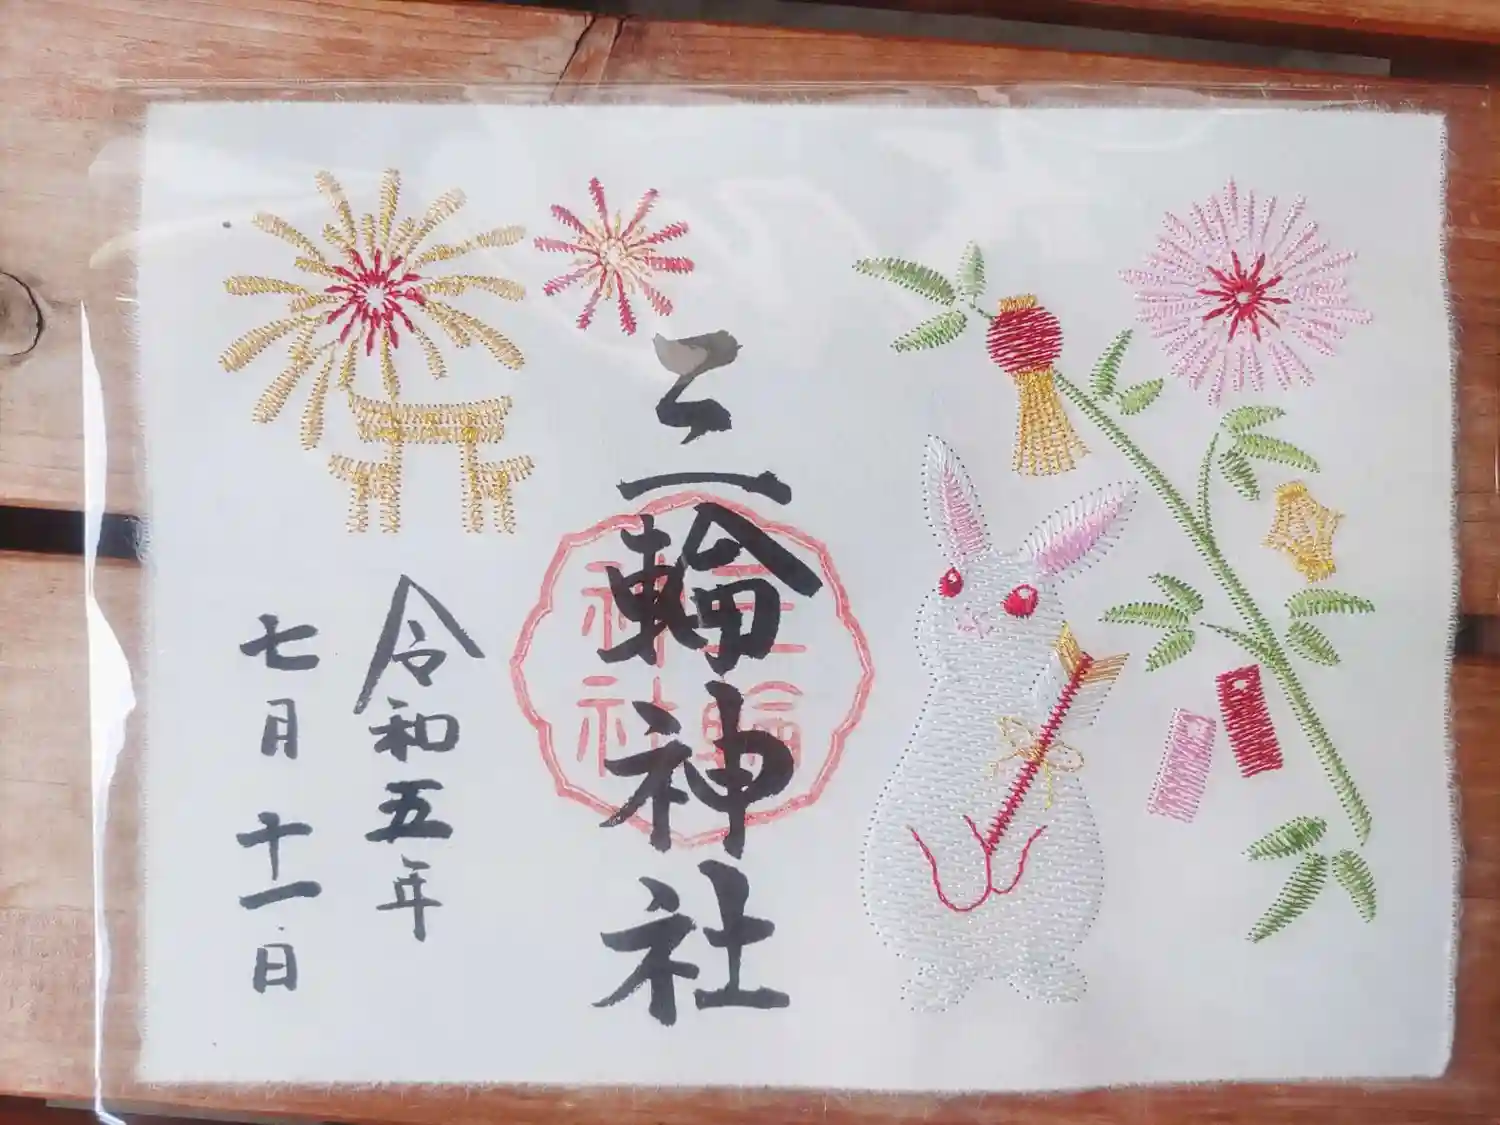 三輪神社
三輪
神社
令和五年
七月十一日